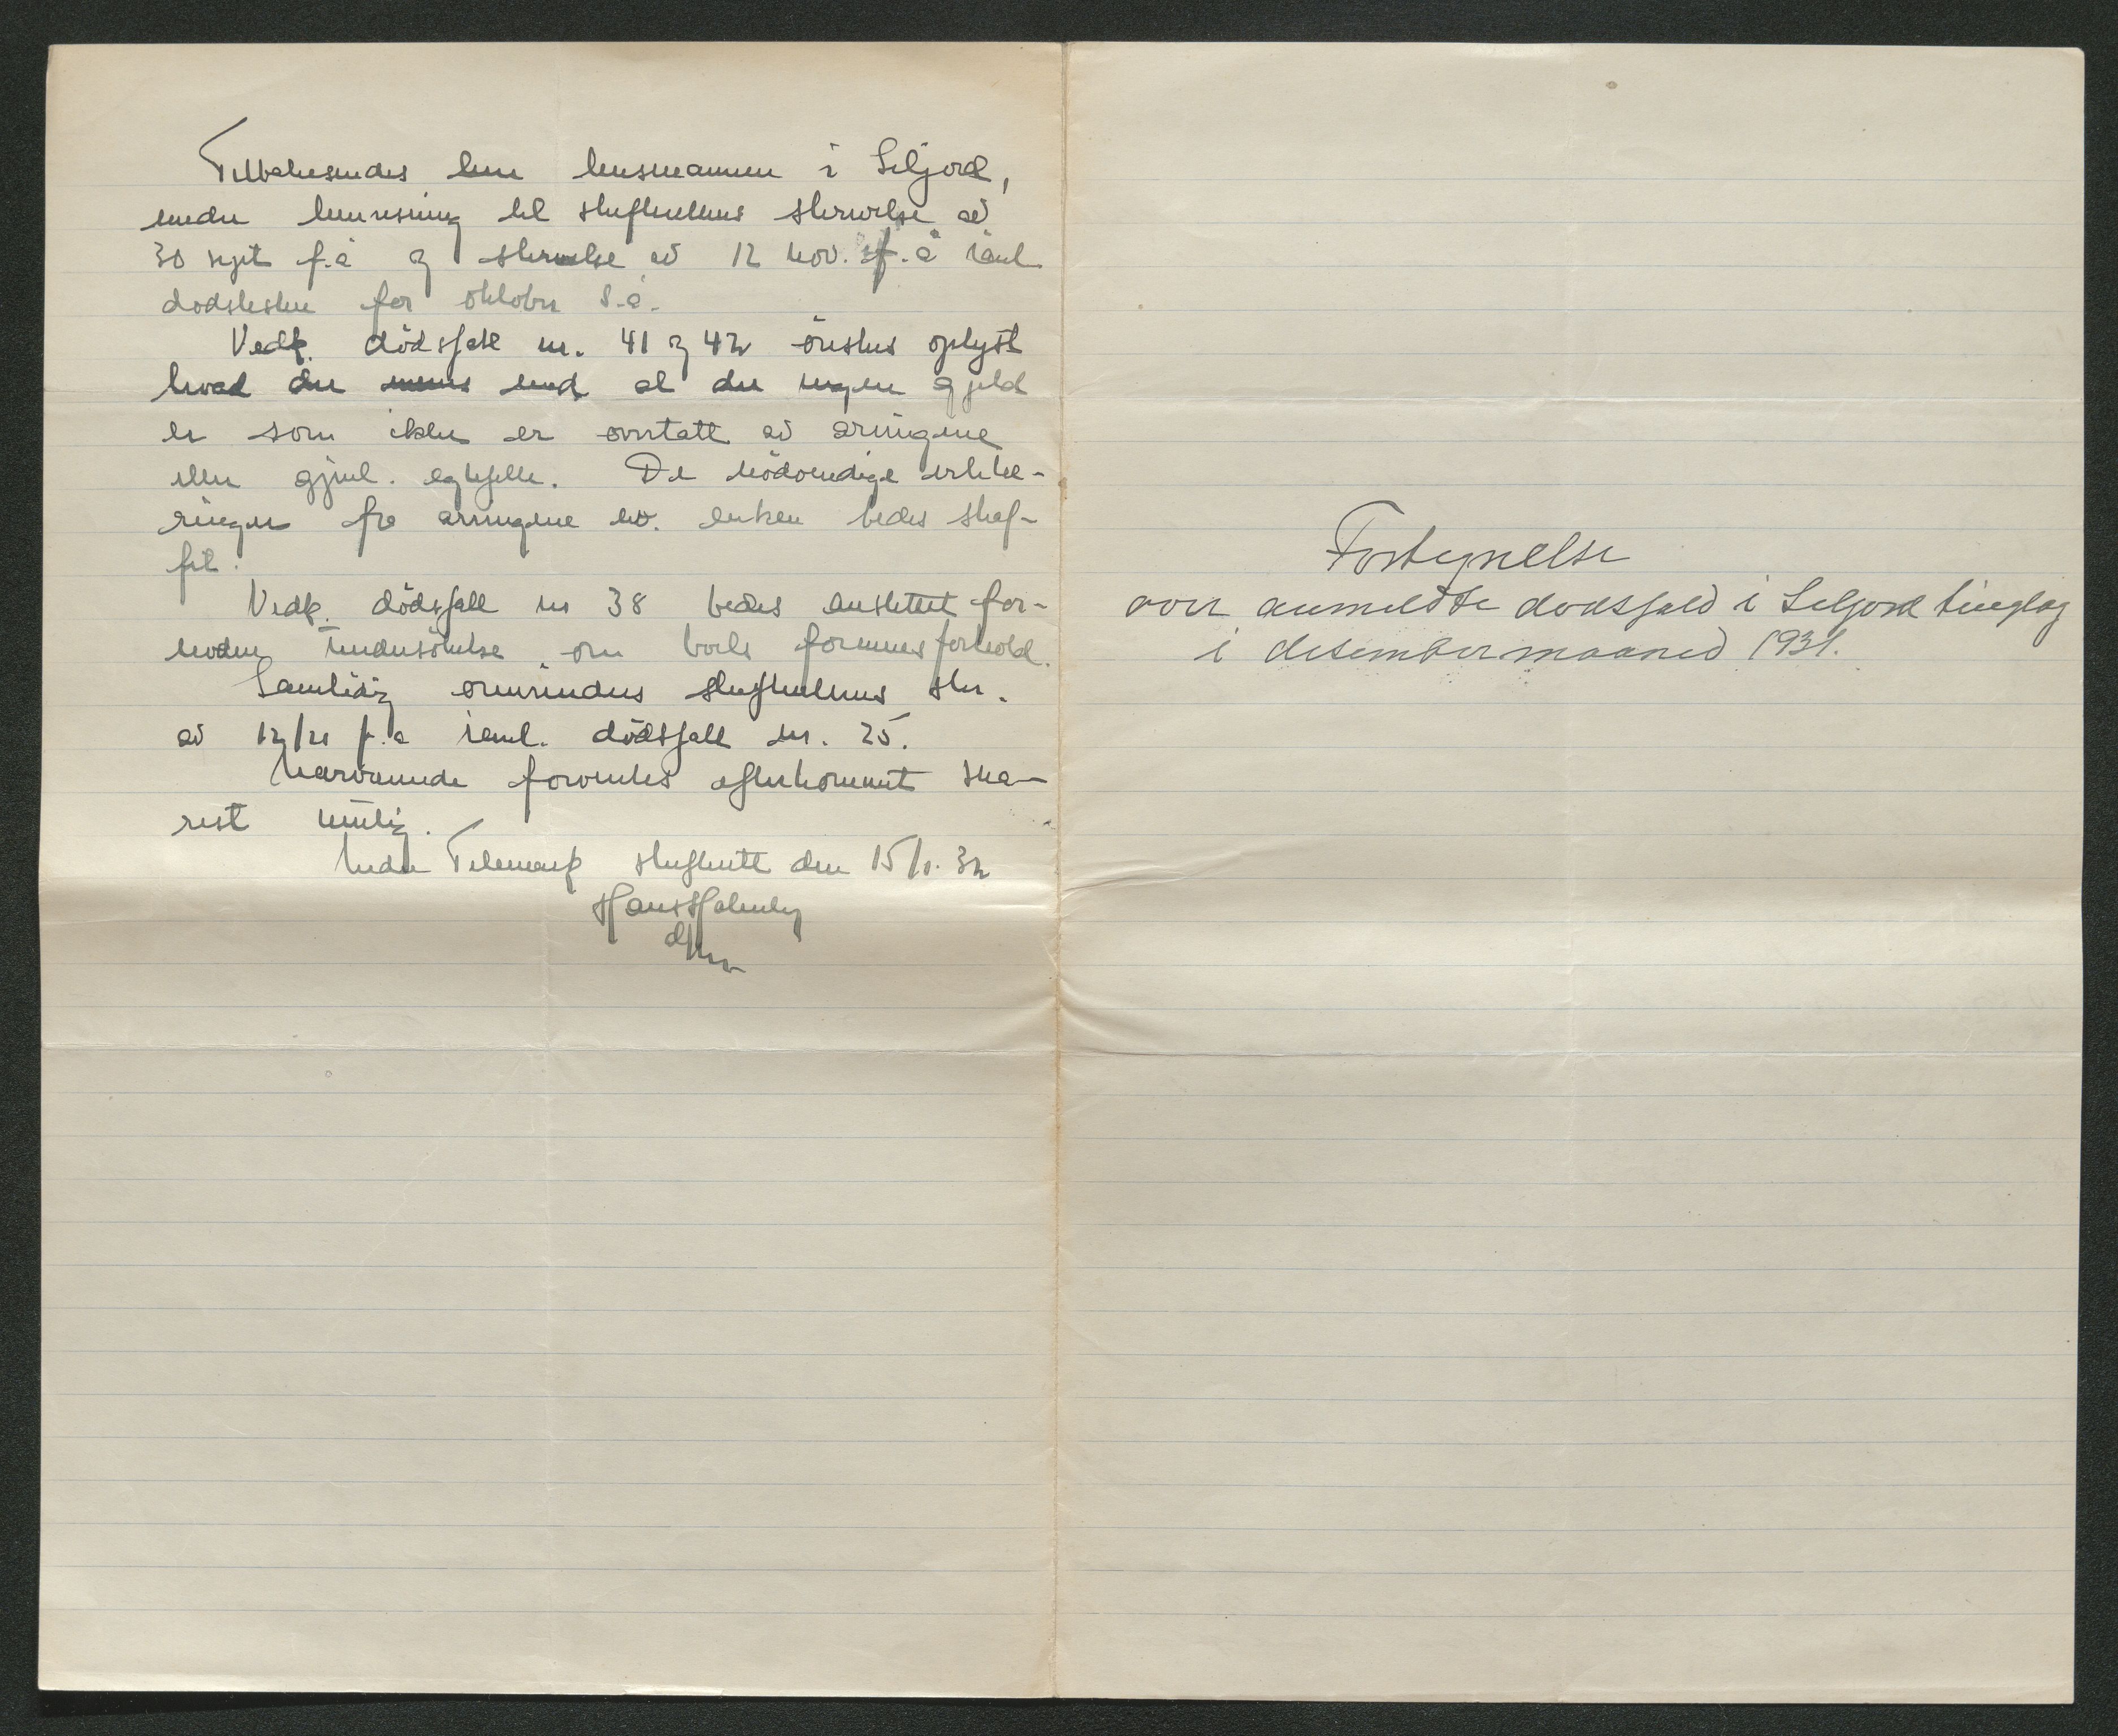 Tilbakesendes lensmannen i Seljord,
under henvisning til skifterettens skrivelse av
30 sept f.å og skrivelse av 12 nov. f.å saml
dødslisten for oktober s.å.
Vedk. dødsfall nr. 41 og 42 ønskes oplyst
hvad der menes med at der ingen gjeld
er som ikke er overtatt av arvingene
eller gjenl. egtefelle. De nödvendige erklæ-
ringer fra arvingene ev. enken bedes skaf-
fet.
Vedk. dödsfall nr 38 bedes anstillet for-
nöden undersökelse om boets formuesforhold.
Samtidig erindres skifterettens skr.
av 12/11 f.å saml. dödsfall nr. 25.
Nærværende forventes efterkommet sna-
rest mulig.
Nedre Telemark skifterett den 15/1. 32
Hans
Fortegnelse
over anmeldte dødsfald i Seljord tinglag
i desember maaned 1931.